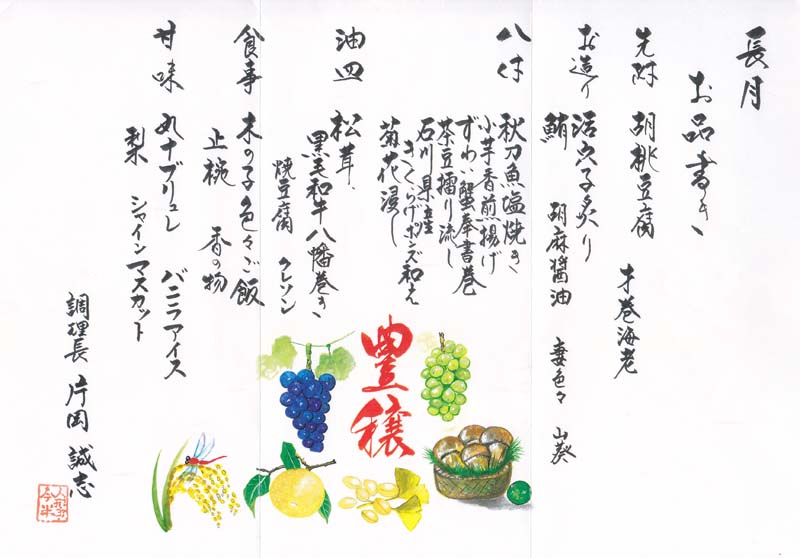 長月
お品書き
先附 胡桃豆腐 才巻海老
お造り 活穴子炙り
鮪 胡麻醤油 妻色々 山葵
八寸 秋刀魚塩焼き
小芋香煎揚げ
ずわい蟹奉書巻
茶豆擂り流し
石川県産
きくらげポンズ和え
菊花浸し
油皿 松茸、
黒毛和牛八幡巻き
焼豆腐 クレソン
食事 木の子色々ご飯
止椀 香の物
甘味 丸十ブリュレ バニラアイス
梨 シャインマスカット
調理長 片岡 誠志
豊穣
人形町今半